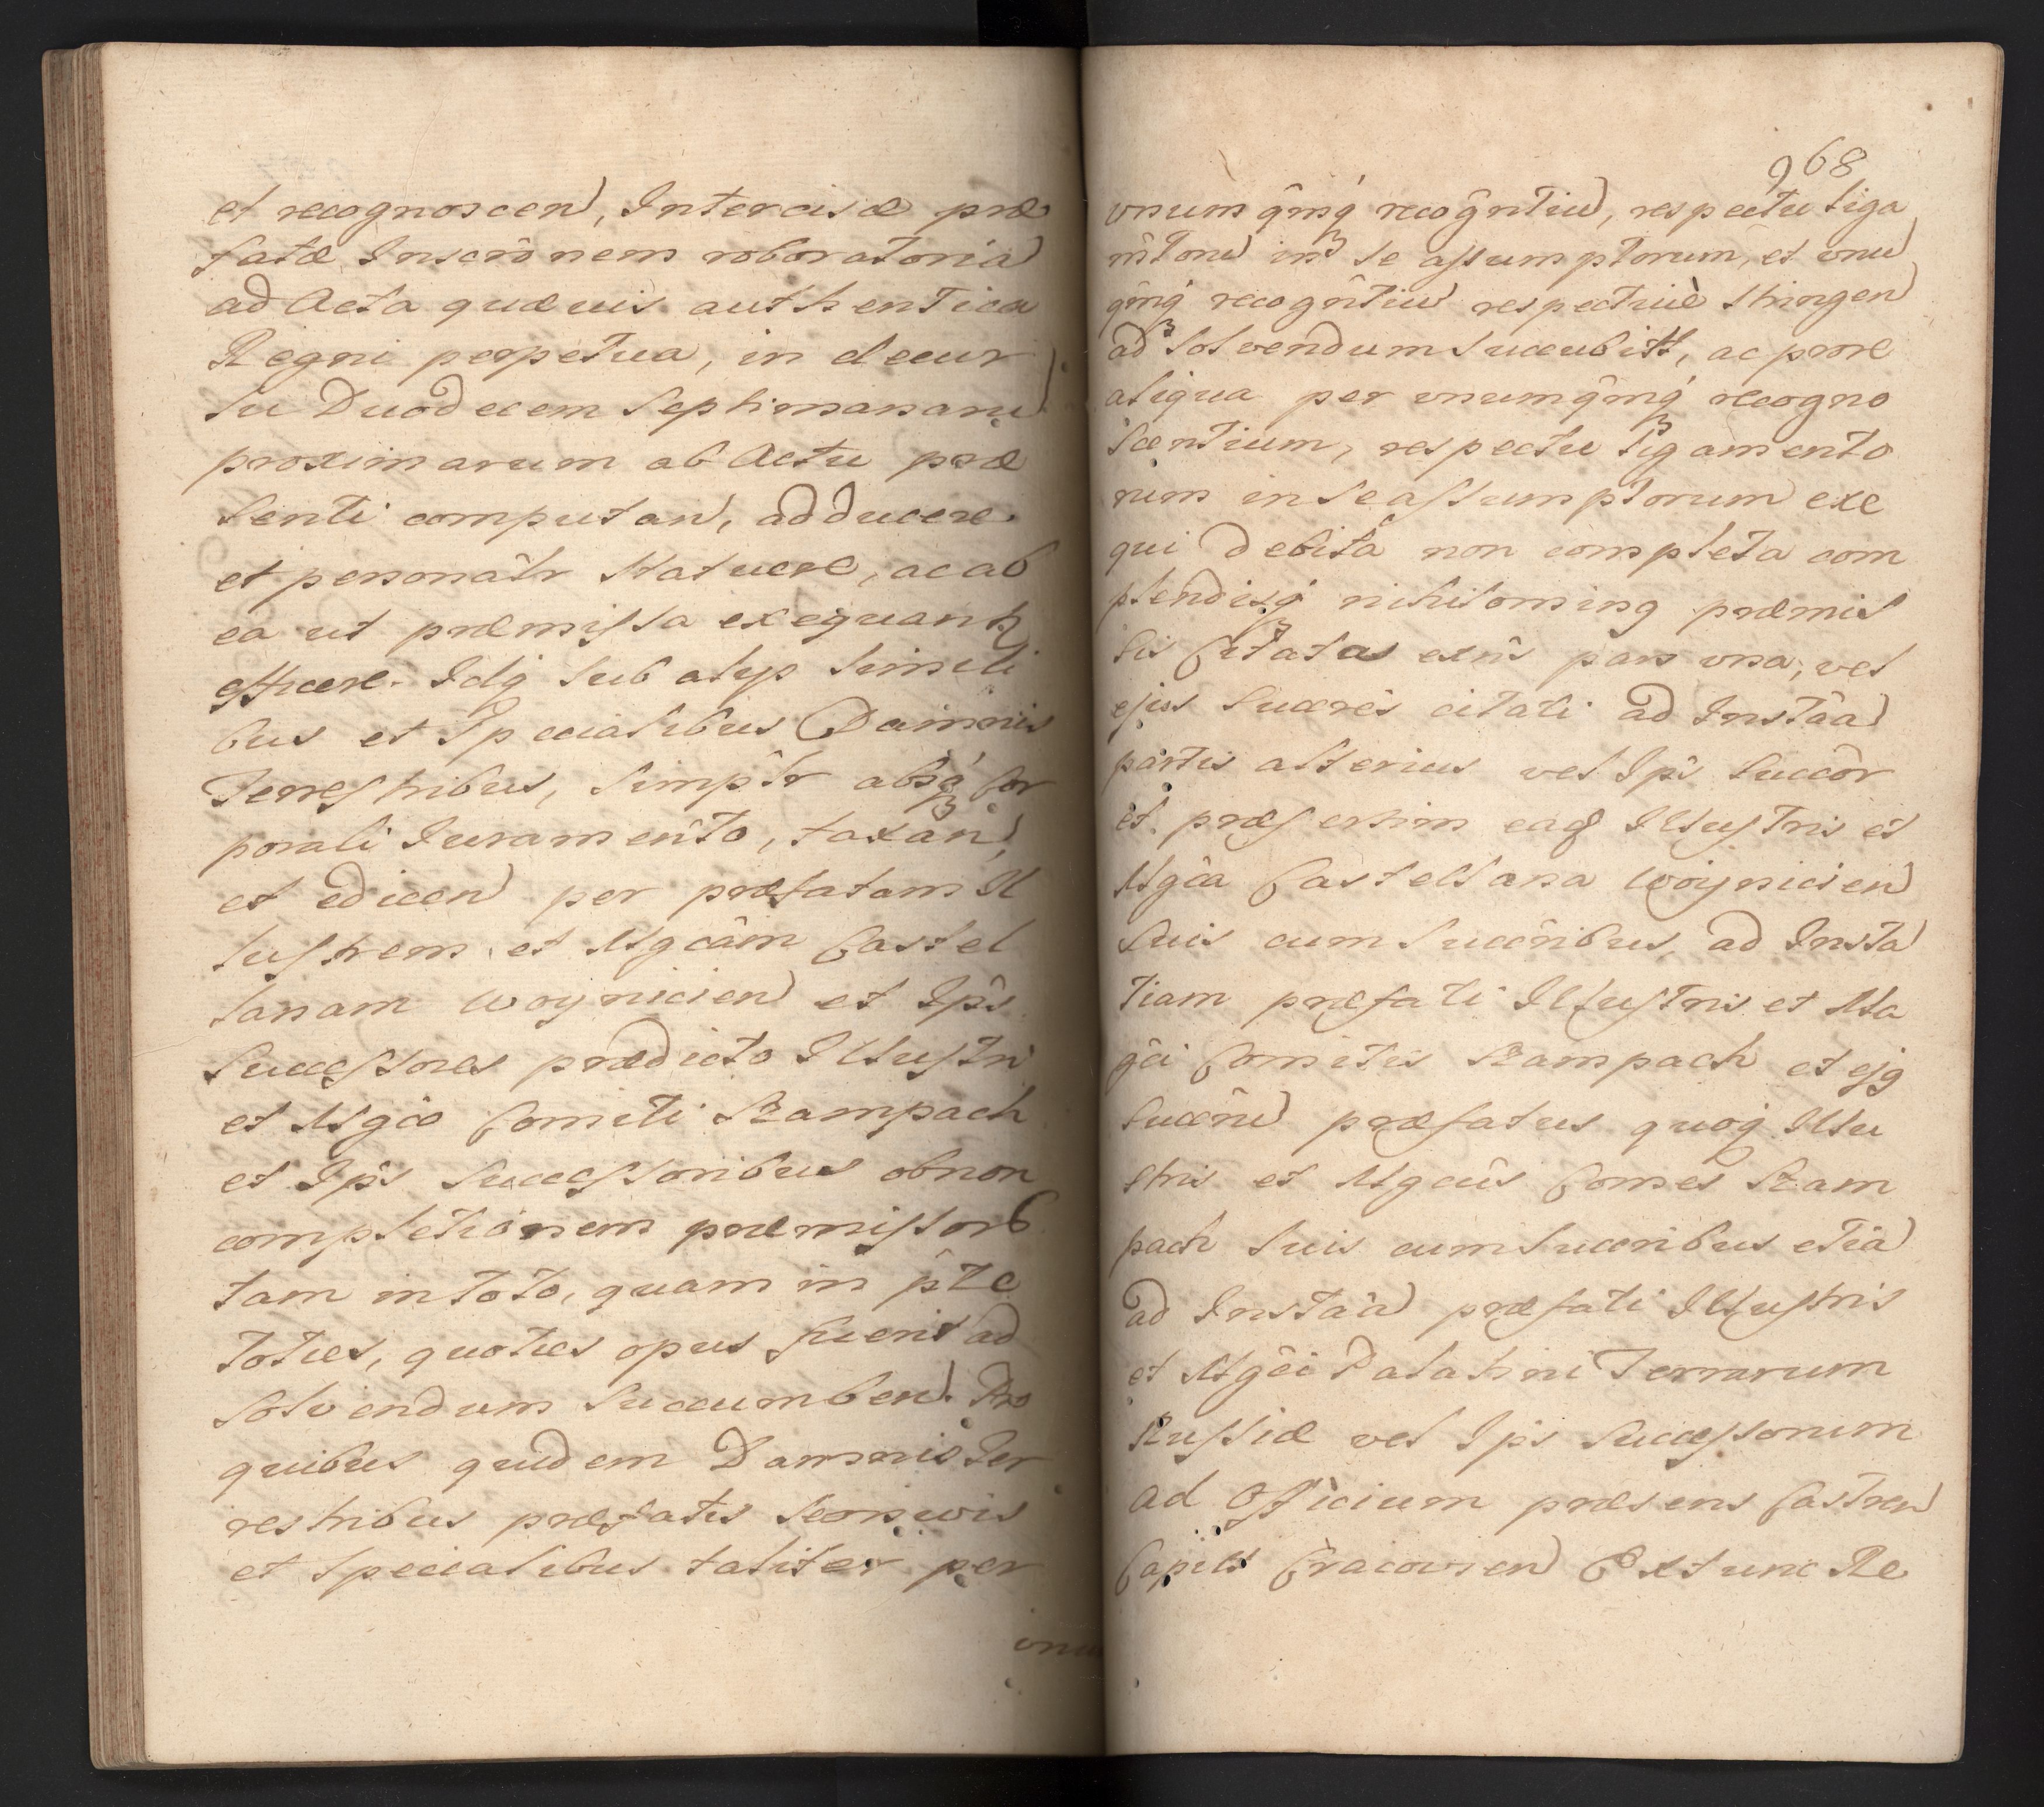 et recognoscen, Intercisæ præ
fatæ Inscrônem roboratoria
ad Acta quæuis authentica
Regni perpetua, in decur
su Duodecem Septimanaru
proximarum ab Actu præ
senti computan, adducere
et personâlr statuere, ac ab
ea ut præmissa exequantr
efficere. Idq sub alijs simili
bus et Specialibus Damnis
Terrestribus, simplr absq Cor
porali Iuramênto, taxan,
et edicen per præfatam Il
lustrem et Mgcâm Castel
lanam Woynicien et Ip̂s
Successores prædicto Illustri
et Mgco Comiti Szampach
et Ip̂s Successoribus ob non
completionem præmissorb
tam in toto, quam in pt̂e
toties, quoties opus fuerit ad
solvendum succumben. Pro
quibus quidem Damnis Ter
restribus præfatis seorsivis
et specialibus taliter per
unu
968
vnumq̂mq recogn̂tiu, respectu liga
m̂toru in se assumptorum, et vnu
q̂mq recogn̂tiu respectiuè stringen
ad solvendum succubitt, ac pro re
aliqua per vnumq̂mq recogno
scentium, respectu ligamento
rum in se assumptorum exe
qui debita non completa com
plendisq nihilominq præmis
sis Citata exn̂s pars vna, vel
ejus Succrês citati ad Instâa
partis alterius vel Ip̂s Succôr
et præsertim eadq Illustris et
Mgca Castellana Woynicien
suis cum Succôribus, ad Insta
tiam præfati Illustris et Ma
gci Comitis Szampach et ejq
Succôru præfatus quoq Illu
stris et Mgcûs Comes Szam
pach suis cum Succoribus etia
ad Instâa præfati Illustris
et Mgci Palatini Terrarum
Russiæ vel Ip̂s Successorum
ad Officium præsens Castren
Capitle Cracovien Ex tunc Re